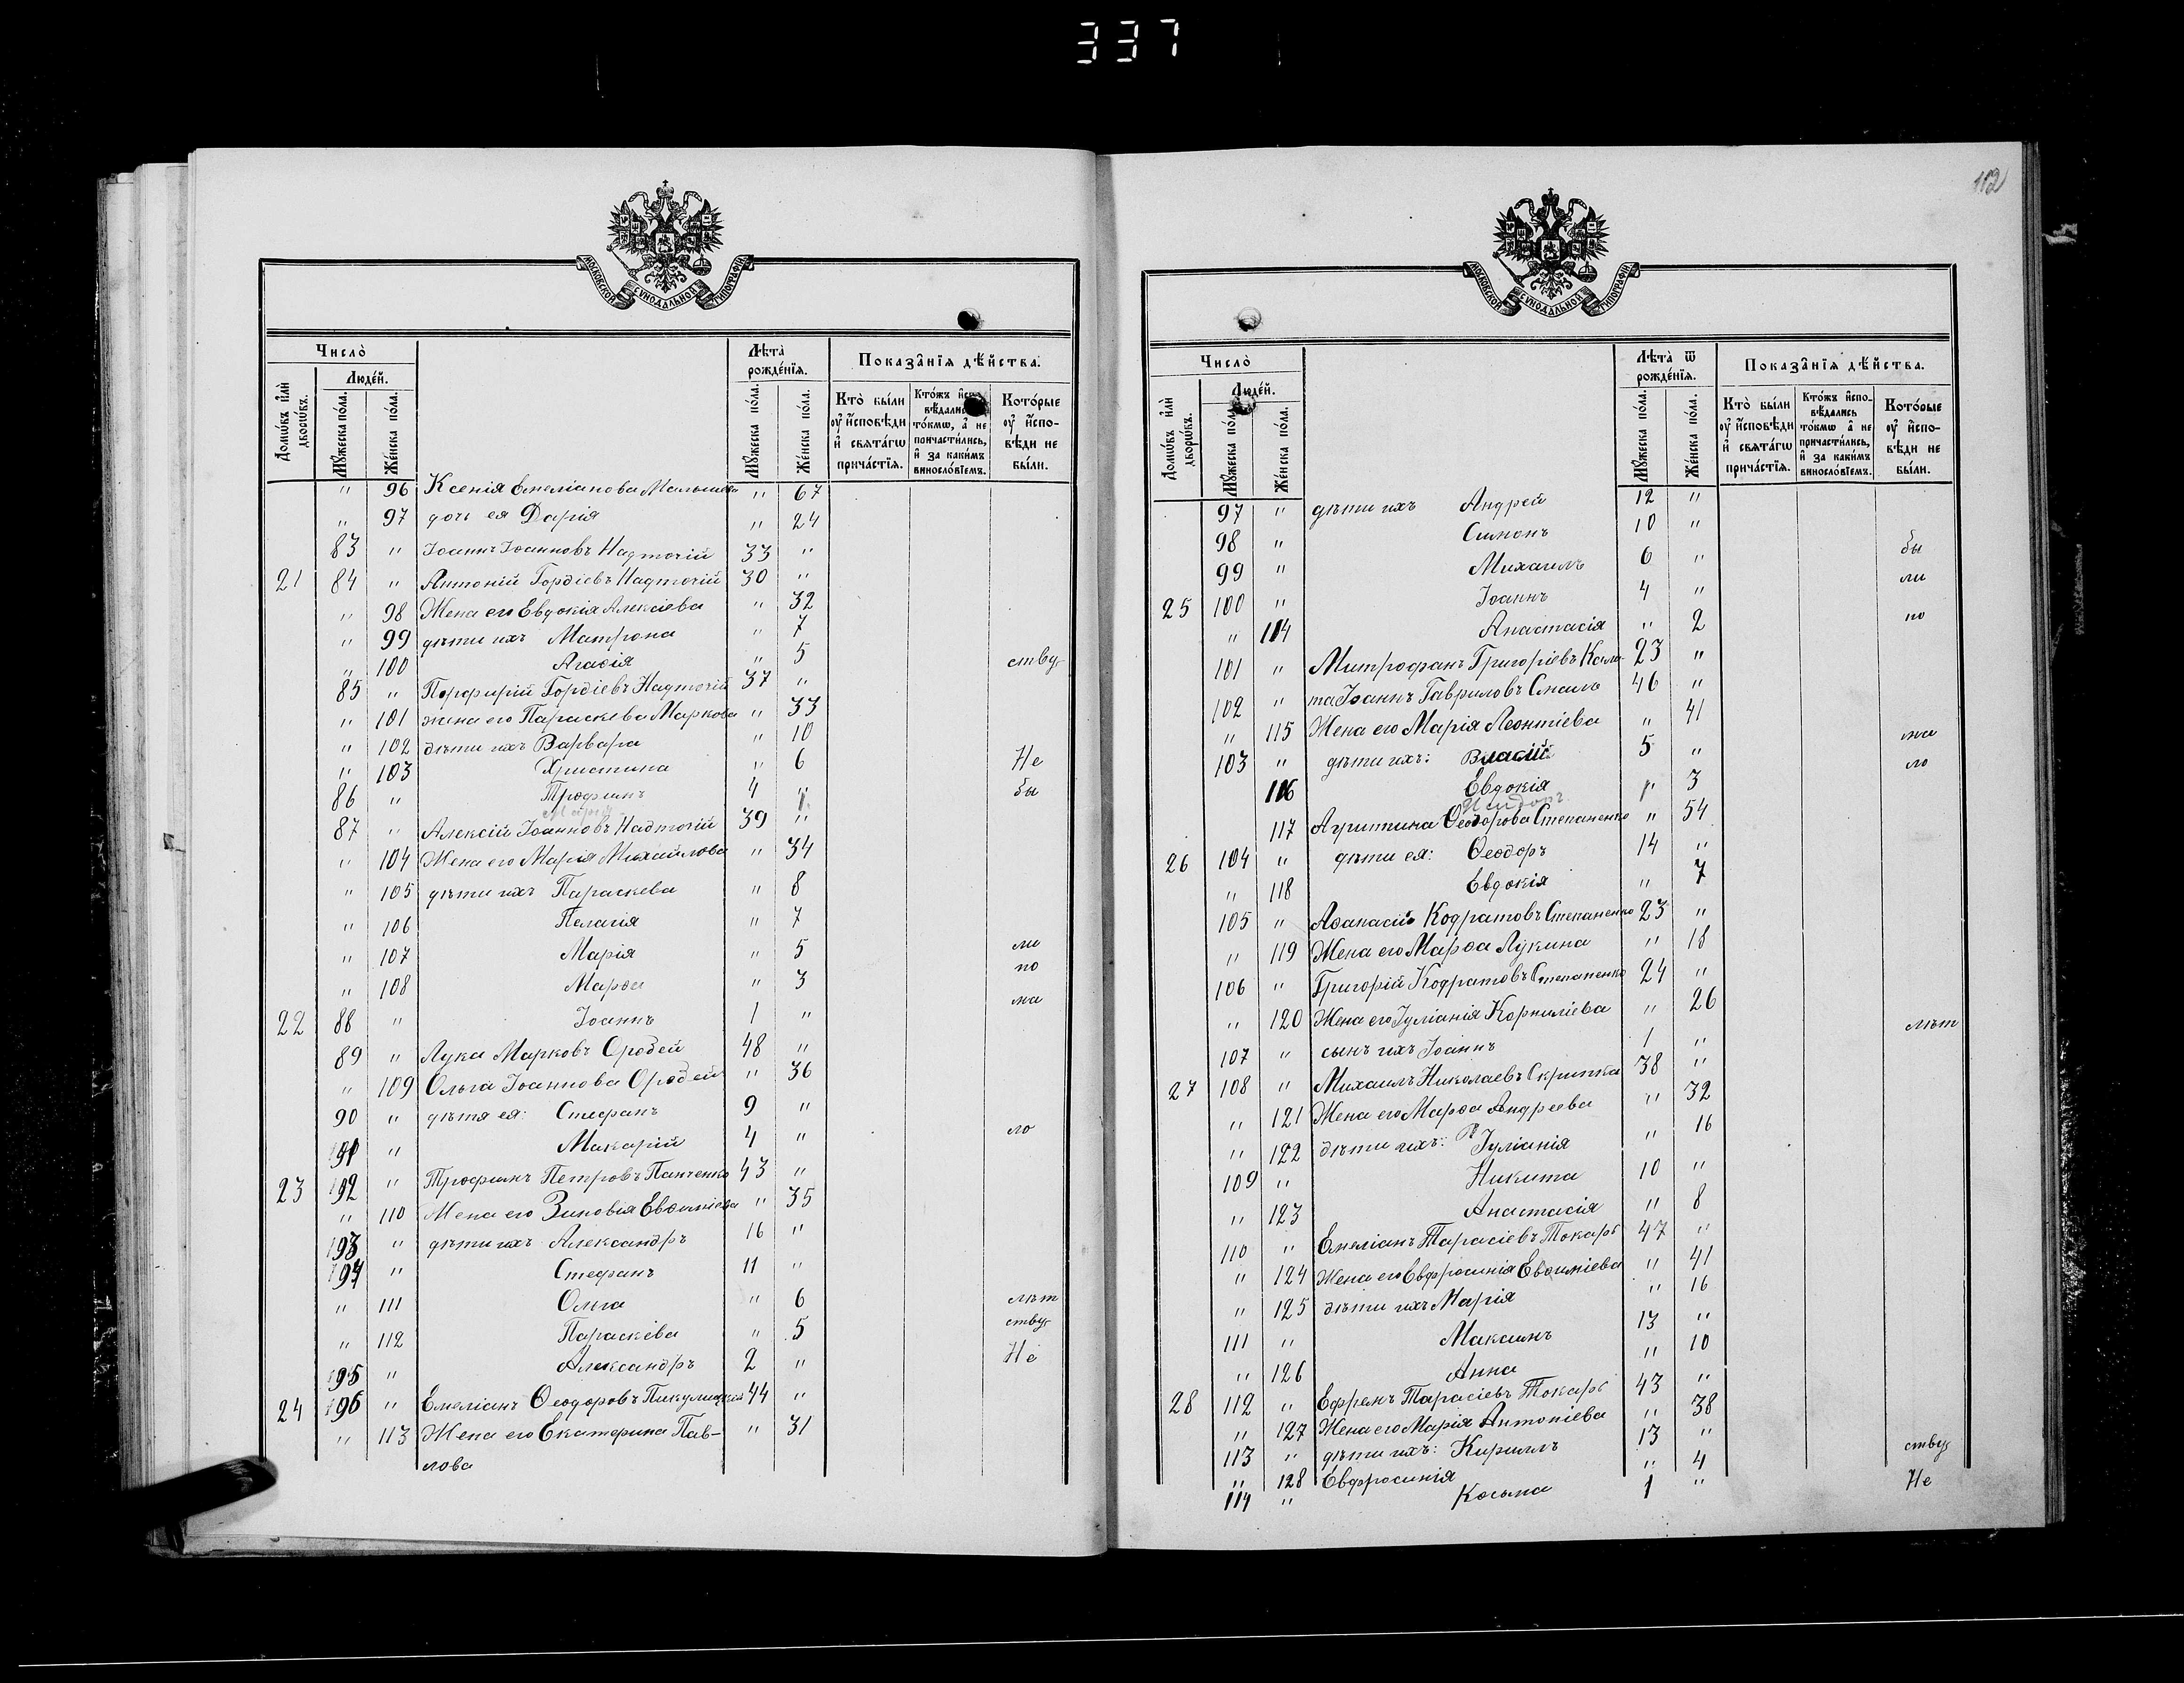 337
МОСКОВСКОЙ СѴНОДАЛЬНОЙ ТИПОГРАФІИ
Число̀
Лѣта̀ рожде́нїѧ.
Показа̑нїѧ дѣ́йства.
Домѡ́въ и҆лѝ дворѡ́въ.
Люде́й.
Мꙋ́жеска по́ла.
Же́нска по́ла.
Мꙋ́жеска по́ла.
Же́нска по́ла.
Кто̀ бы́ли оу҆ и҆́сповѣди и҆ свѧта́гѡ прича́стїѧ.
Кто́жъ и҆спо- вѣ́дались то́кмѡ, а҆ не причасти́лись, и҆ за каки́мъ винносло́вїемъ.
Кото́рые оу҆ и҆́спо- вѣди не бы́ли.
" 96 Ксенія Емеліанова Малышева " 67
" 97 дочь ея Дарія " 24
83 " Іоаннъ Іоанновъ Надточій 33 "
21 84 " Антоній Гордіевъ Надточій 30 "
" 98 Жена его Евдокія Алексіева " 32
" 99 дѣти ихъ Матрона " 7
" 100 Агафія " 5 ству-
85 " Порфирій Гордіевъ Надточій 37 "
" 101 жена его Параскева Маркова " 33
" 102 дѣти ихъ Варвара " 10
" 103 Христина " 6 Не
86 " Трофимъ 4 " бы
87 " Алексій Іоанновъ Надточій 39 "
" 104 Жена его Марія Михайлова " 34
" 105 дѣти ихъ Параскева " 8
" 106 Пелагія " 7
" 107 Марія " 5 ли
" 108 Марѳа " 3 по
22 88 " Іоаннъ 1 " ма
89 " Лука Марковъ Сродей 48 "
" 109 Ольга Іоаннова Сродей " 36
90 " дѣтя ея: Стефанъ 9 "
91 " Макарій 4 " ло
23 92 " Трофимъ Петровъ Панченко 43 "
" 110 Жена его Зиновія Евѳиміева " 35
93 " дѣти ихъ Александръ 16 "
94 " Стефанъ 11 "
" 111 Ольга " 6 лѣт
" 112 Параскева " 5 ству-
95 " Александръ 2 " Не
24 96 " Емеліанъ Ѳеодоровъ Пикулицкій 44 "
" 113 Жена его Екатерина Пав- " 31
лова
112
МОСКОВСКОЙ СѴНОДАЛЬНОЙ ТИПОГРАФІИ
Число̀
Лѣта̀ ѿ рожде́нїѧ.
Показа̑нїѧ дѣ́йства.
Домѡ́въ и҆лѝ дворѡ́въ.
Люде́й.
Мꙋ́жеска по́ла.
Же́нска по́ла.
Мꙋ́жеска по́ла.
Же́нска по́ла.
Кто̀ бы́ли оу҆ и҆́сповѣди и҆ свѧта́гѡ прича́стїѧ.
Кто́жъ и҆спо- вѣ́дались то́кмѡ а҆ не причасти́лись, и҆ за каки́мъ винносло́вїемъ.
Кото́рые оу҆ и҆́спо- вѣди не бы́ли.
97 " дѣти ихъ Андрей 12 "
98 " Симонъ 10 " бы
99 " Михаилъ 6 " ли
25 100 " Іоаннъ 4 " по
" 114 Анастасія " 2
101 " Митрофанъ Григоріевъ Коло- 23 "
102 " та Іоаннъ Гавриловъ Смаль 46 "
" 115 Жена его Марія Леонтіева " 41 ма
103 " дѣти ихъ: Власій 5 " ло
116 Евдокія " 3
117 Агриппина Ѳеодорова Степаненко " 54
26 104 " дѣти ея: Ѳеодоръ 14 "
" 118 Евдокія " 7
105 " Аѳанасій Кодратовъ Степаненко 23 "
" 119 Жена его Марѳа Лукина " 18
106 " Григорій Кодратовъ Степаненко 24 "
" 120 Жена его Іуліанія Корниліева " 26 лѣт
107 " сынъ ихъ Іоаннъ 1 "
27 108 " Михаилъ Николаевъ Скрипка 38 "
" 121 Жена его Марѳа Андреева " 32
" 122 дѣти ихъ: Іуліанія " 16
109 " Никита 10 "
" 123 Анастасія " 8
110 " Емеліанъ Тарасіевъ Токарь 47 "
" 124 Жена его Евфросинія Евѳиміева " 41
" 125 дѣти ихъ Марія " 16
111 " Максимъ 13 "
" 126 Анна " 10
28 112 " Ефремъ Тарасіевъ Токарь 43 "
" 127 Жена его Марія Антоніева " 38
113 " дѣти ихъ: Кириллъ 13 " ству-
" 128 Евфросинія " 4 Не
114 " Косьма 1 "